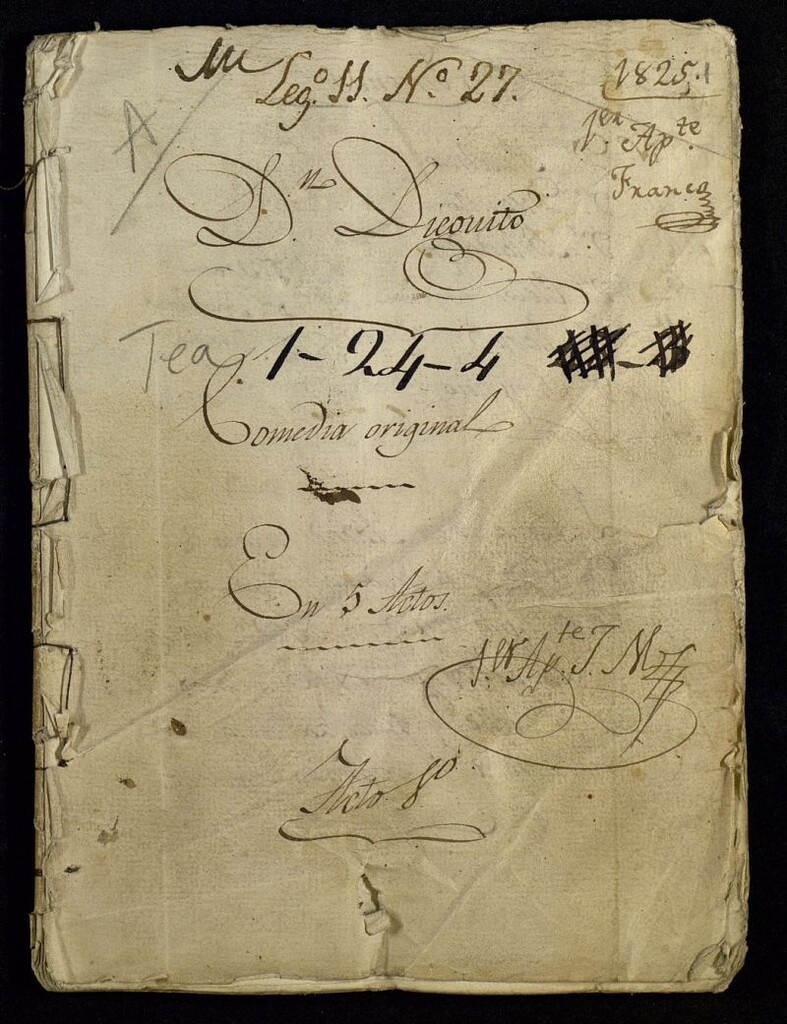 Leg.º 11. N.º 27.
1825.
A
1.er Ap.te
Franco
D.n Dieguito
Tea 1-24-4
Comedia original
En 5 Actos.
1.er Ap.te J. M
Acto 1º